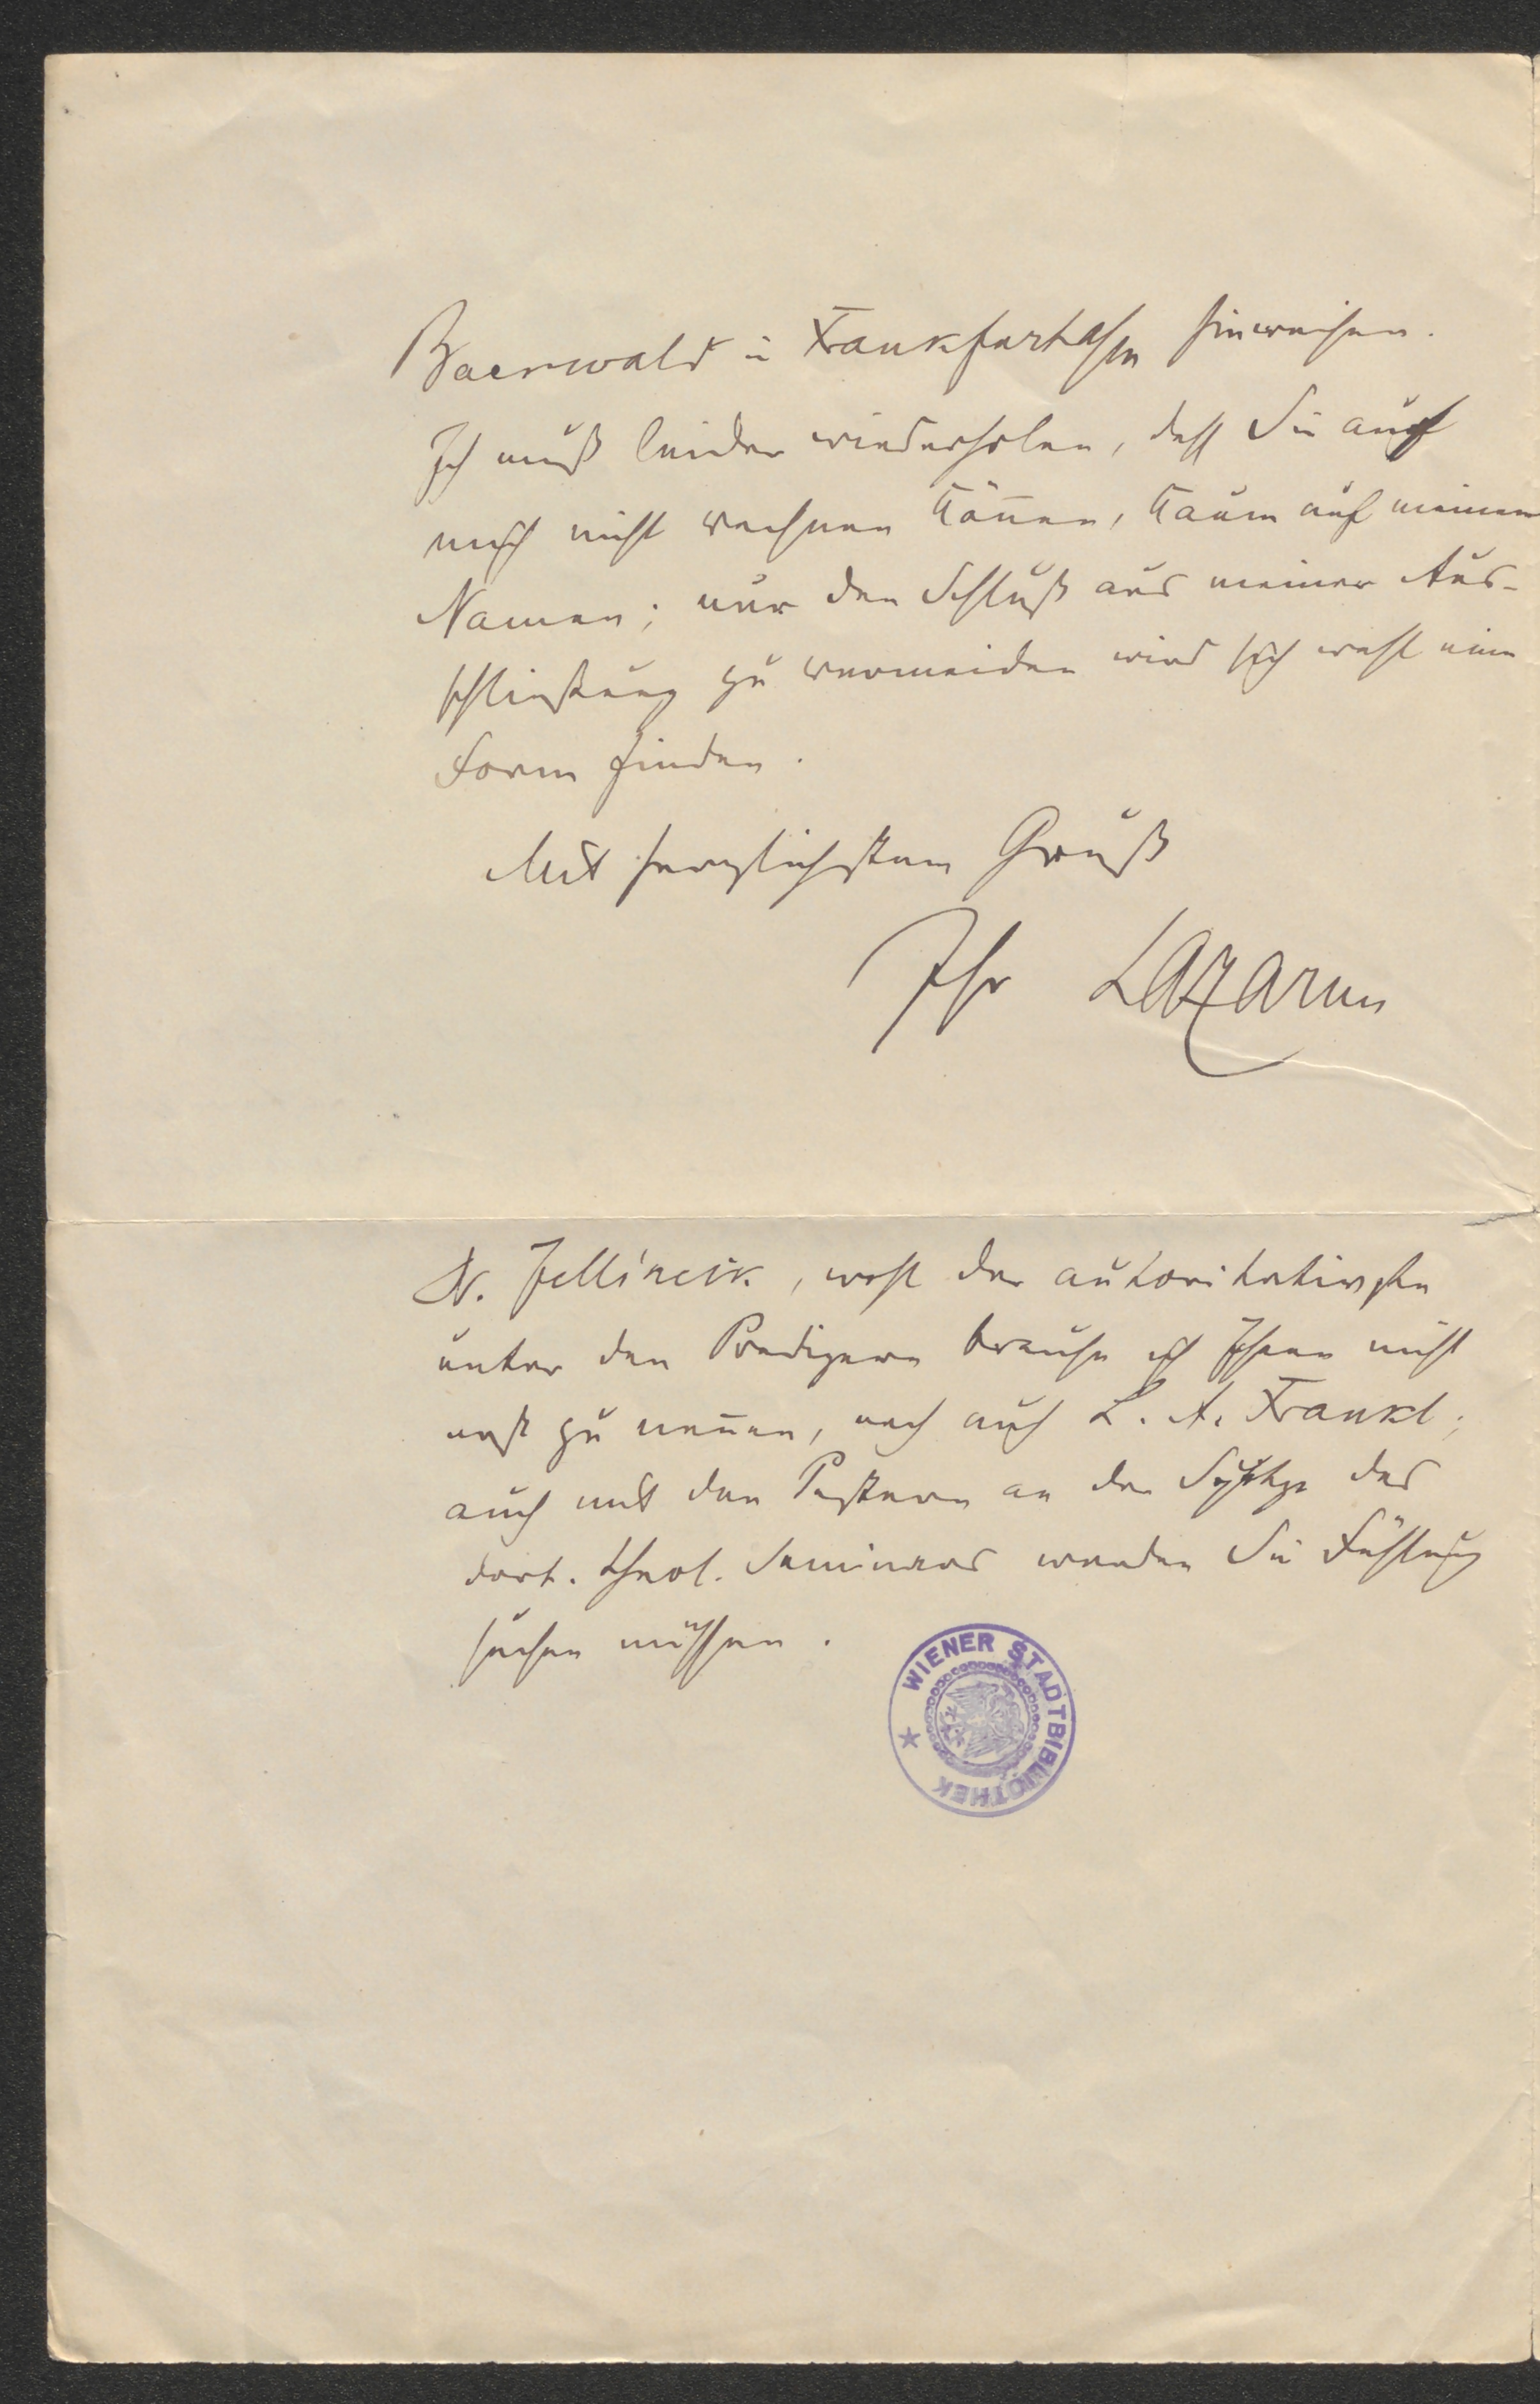 Baerwald in Frankfurt a/m hinweisen.
Ich muß leider wiederholen, dass Sie auf
mich nicht rechnen können, kaum auf meinen
Namen; nur den Schluß aus meiner Aus-
schließung zu vermeiden wird sich wohl eine
Form finden.
Mit herzlichstem Gruß
Ihr Lazarus
Jellineck, wohl der autoritativste
unter den Predigern brauche ich Ihnen nicht
erst zu nennen, noch auch L. A. Frankl;
auch mit den an der Spitze des
dort. theol. Seminars werden Sie Fühlung
suchen müssen.
WIENER STADTBIBLIOTHEK